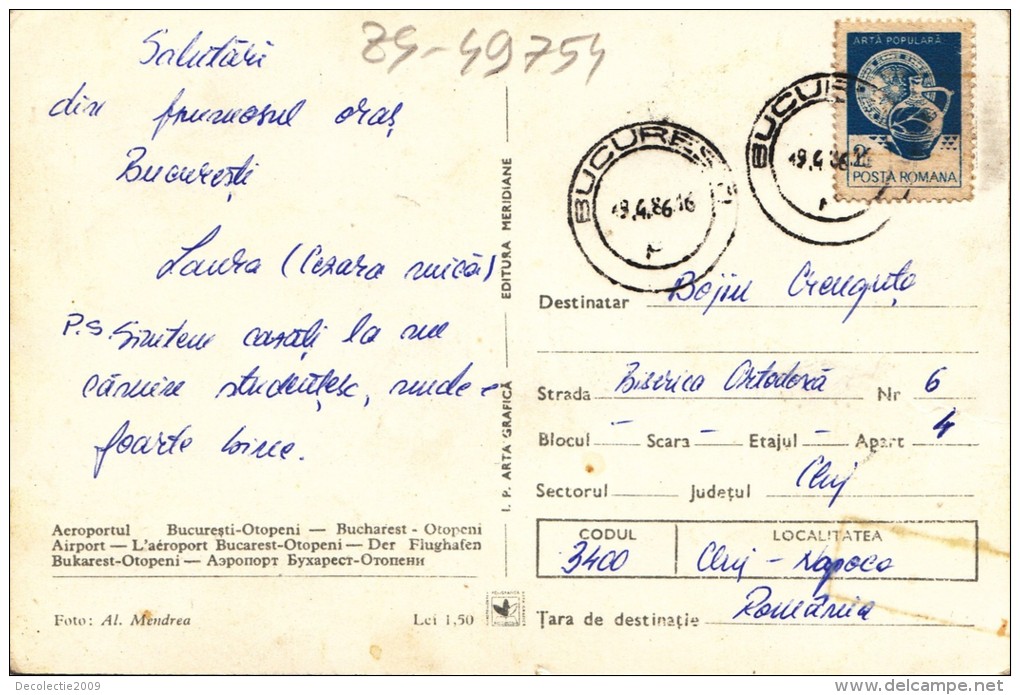 Salutări
din frumosul oraș
București
Laura (Cezara mică)
P.S. Sîntem cazați la un
cămin studențesc, unde e
foarte bine.
Aeroportul București-Otopeni — Bucharest - Otopeni
Airport — L'aéroport Bucarest-Otopeni — Der Flughafen
Bukarest-Otopeni — Аэропорт Бухарест-Отопени
Foto: Al. Mendrea Lei 1,50
I. P. ARTA GRAFICĂ EDITURA MERIDIANE
ZS-49754
BUCUREȘTI
19.4.86.16
BUCUREȘTI
19.4.86
ARTĂ POPULARĂ
2
POSTA ROMANA
Destinatar Bojin Crenguța
Strada Biserica Ortodoxă Nr 6
Blocul — Scara — Etajul — Apart 4
Sectorul Județul Cluj
CODUL LOCALITATEA
3400 Cluj - Napoca
Țara de destinație România
Decolectie2009
www.delcampe.net